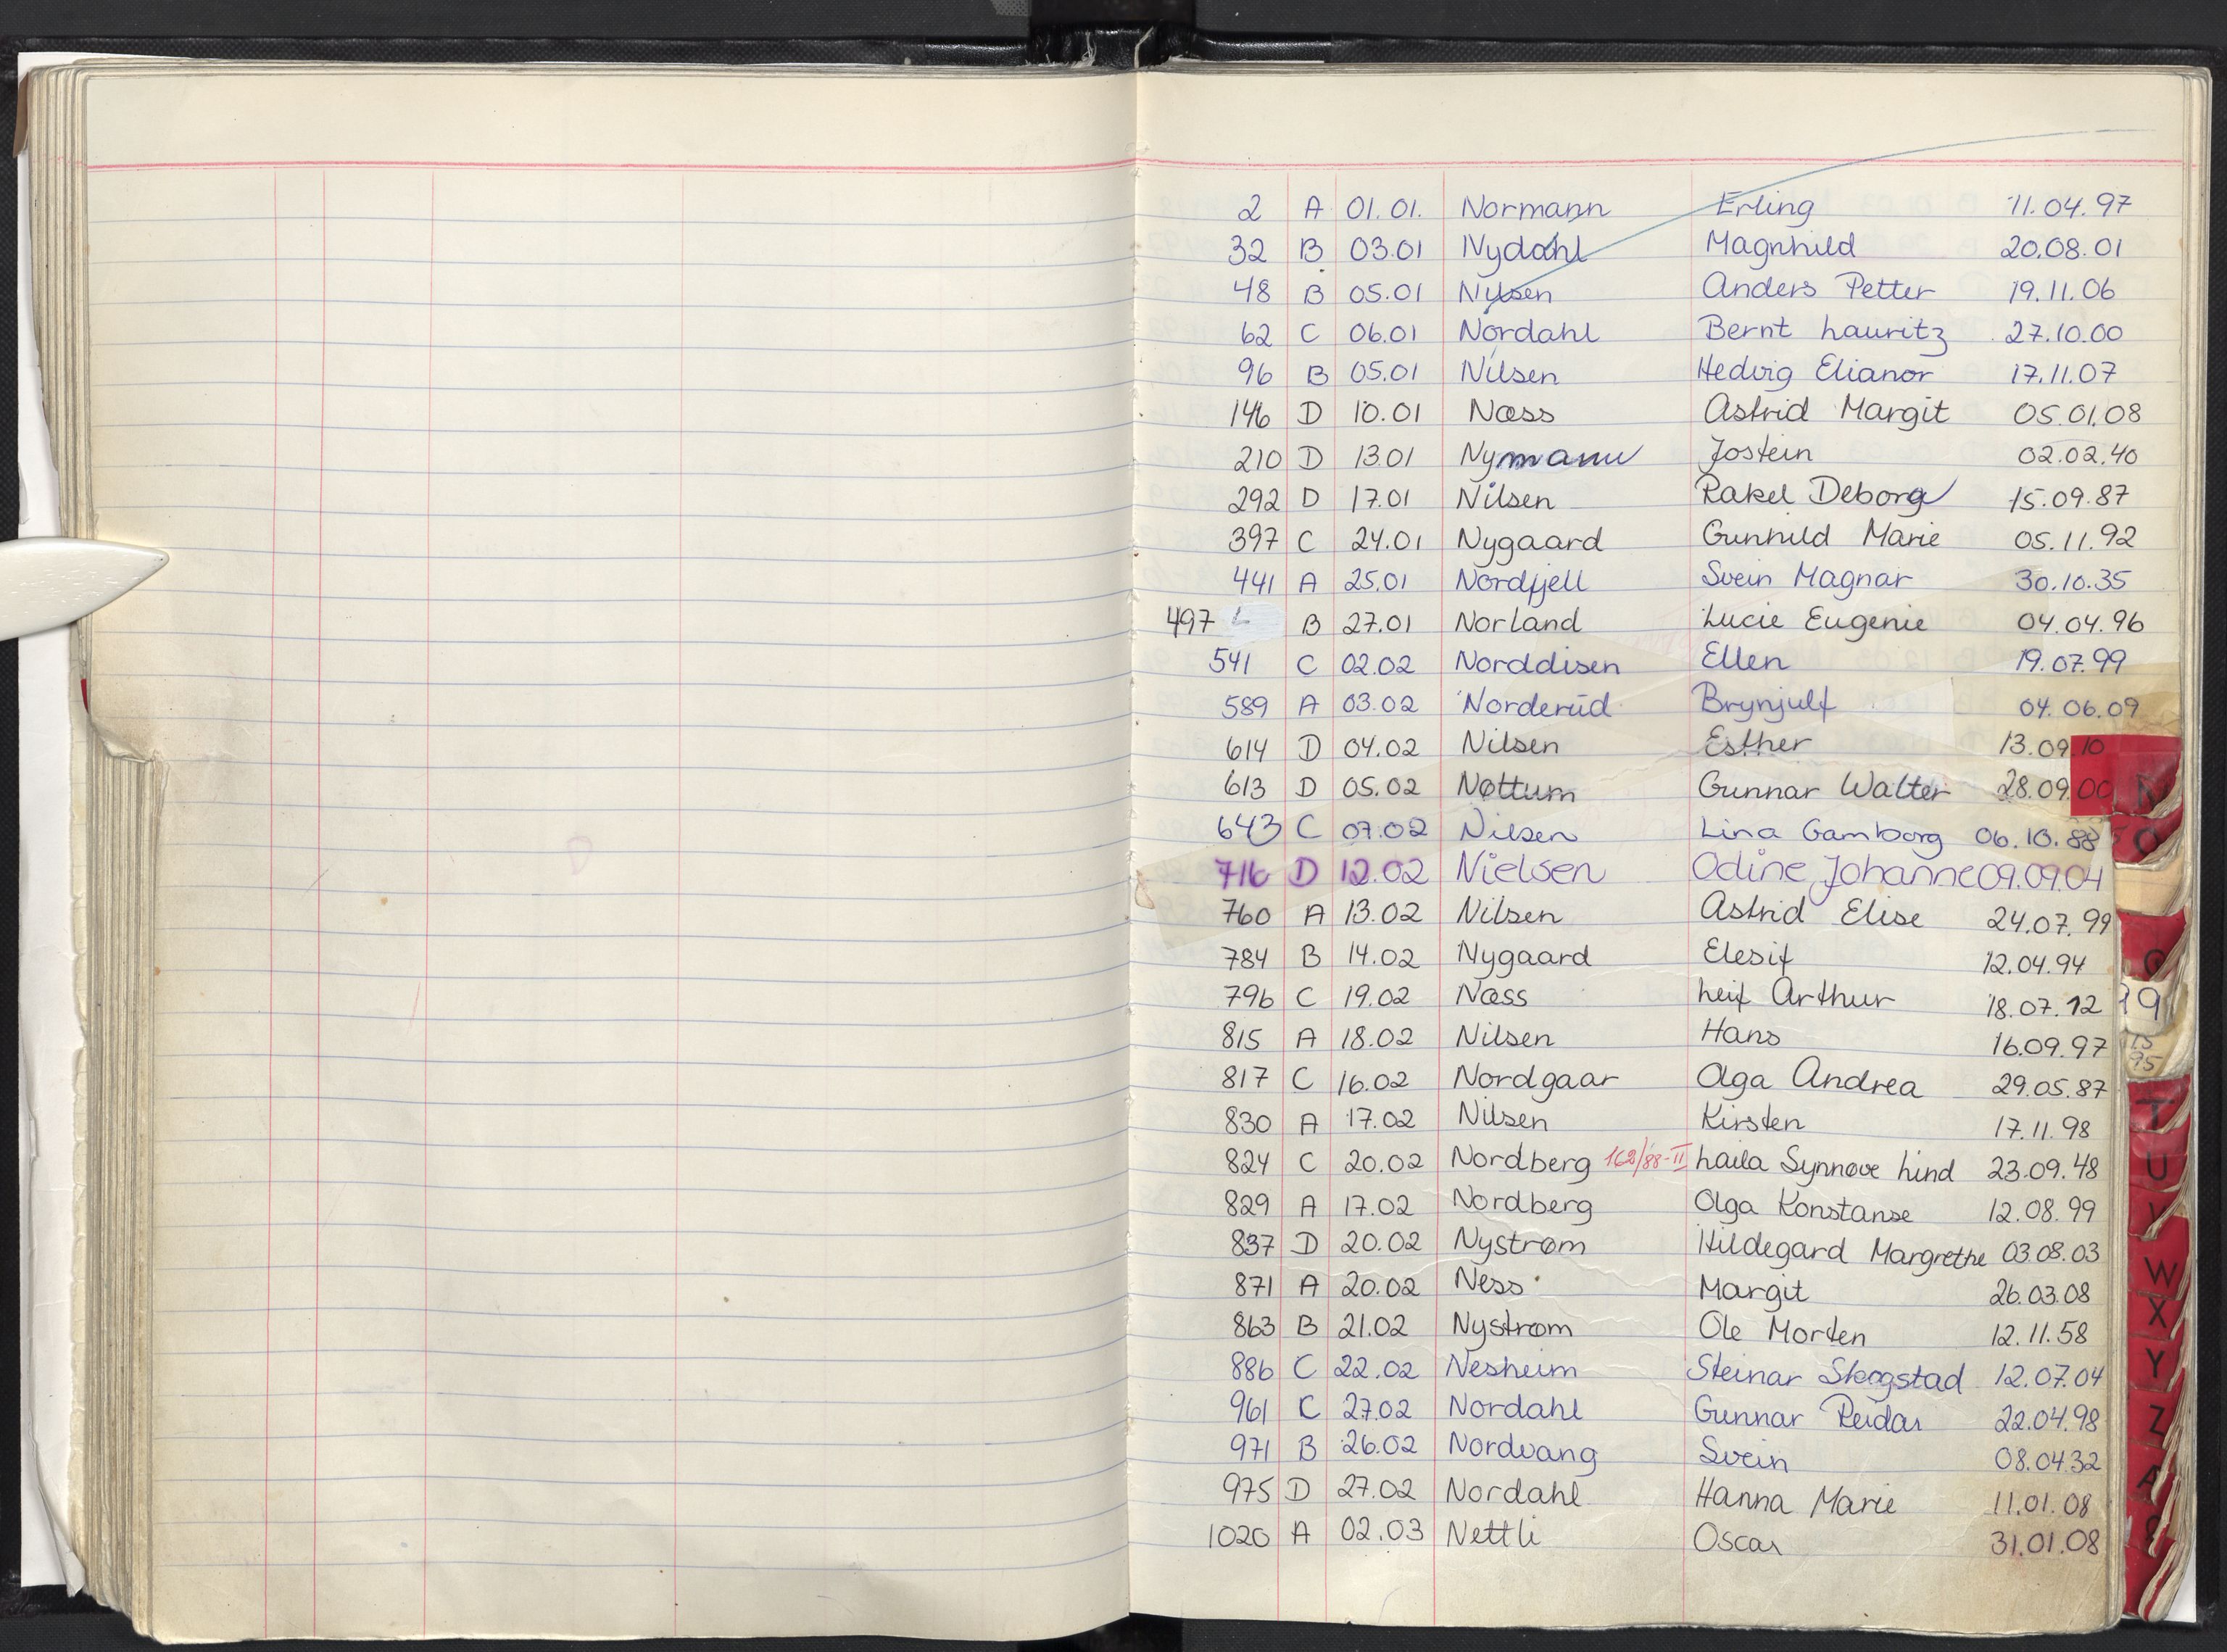 2 A 01.01. Normann Erling 11.04.97
32 B 03.01 Nydahl Magnhild 20.08.01
48 B 05.01 Nylsen Anders Petter 19.11.06
62 C 06.01 Nordahl Bernt Lauritz 27.10.00
96 B 05.01 Nilsen Hedvig Elianor 17.11.07
146 D 10.01 Næss Astrid Margit 05.01.08
210 D 13.01 Nymann Jostein 02.02.40
292 D 17.01 Nilsen Rakel Deborg 15.09.87
397 C 24.01 Nygaard Gunhild Marie 05.11.92
441 A 25.01 Nordfjell Svein Magnar 30.10.35
497 B 27.01 Norland Lucie Eugenie 04.04.96
541 C 02.02 Norddisen Ellen 19.07.99
589 A 03.02 Norderud Brynjulf 04.06.09
614 D 04.02 Nilsen Esther 13.09.10
613 D 05.02 Nøttum Gunnar Walter 28.09.00 N
643 C 07.02 Nilsen Lina Gamborg 06.10.88 O
716 D 12.02 Nielsen Odine Johanne 09.09.04
760 A 13.02 Nilsen Astrid Elise 24.07.99
784 B 14.02 Nygaard Elesif 12.04.94
796 C 19.02 Næss Leif Arthur 18.07.12
815 A 18.02 Nilsen Hans 16.09.97
817 C 16.02 Nordgaar Olga Andrea 29.05.87
830 A 17.02 Nilsen Kirsten 17.11.98 T
824 C 20.02 Nordberg 168/88-II Laila Synnøve Lind 23.09.48 U
829 A 17.02 Nordberg Olga Konstanse 12.08.99 V
837 D 20.02 Nystrøm Hildegard Margrethe 03.08.03 W
871 A 20.02 Ness Margit 26.03.08 X
863 B 21.02 Nystrøm Ole Morten 12.11.58 Y
886 C 22.02 Nesheim Steinar Skogstad 12.07.04
961 C 27.02 Nordahl Gunnar Reidar 22.04.98 Z
971 B 26.02 Nordvang Svein 08.04.32
975 D 27.02 Nordahl Hanna Marie 11.01.08
1020 A 02.03 Nettli Oscar 31.01.08